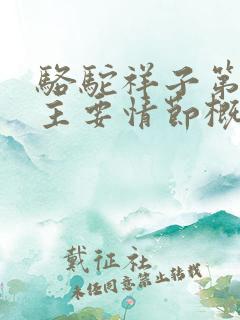 駱駝祥子第
主要情節概
戴征社
未经同意禁止转载